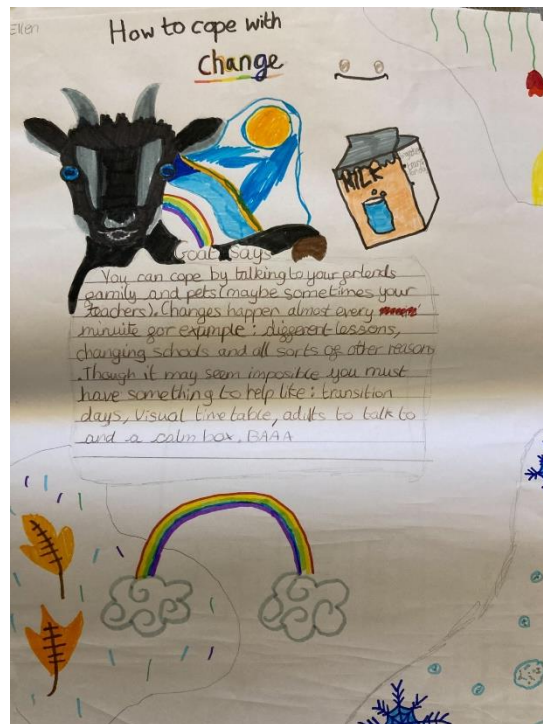 Ellen
How to cope with
change
MILK
Goat says
You can cope by talking to your friends
family and pets (maybe sometimes your
teachers). Changes happen almost every
minuite for example: different lessons,
changing schools and all sorts of other reasons
.Though it may seem imposible you must
have something to help like: transition
days, Visual time table, adults to talk to
and a calm box. BAAA